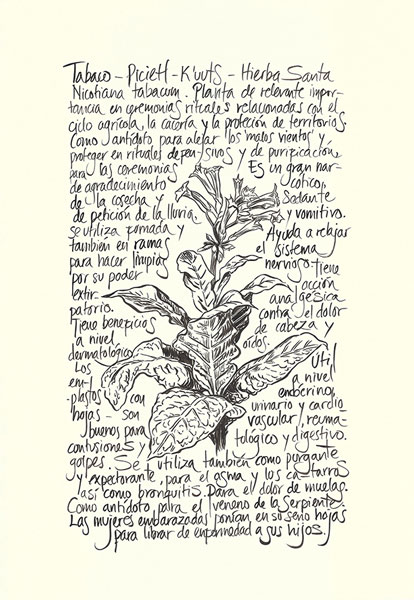 Tabaco – Picietl – K'uuts – Hierba Santa
Nicotiana tabacum. Planta de relevante impor-
tancia en ceremonias rituales relacionadas con el
ciclo agrícola, la cacería y la protección de territorios.
Como antídoto para alejar los 'malos vientos' y
proteger en rituales defensivos y de purificación,
para las ceremonias
de agradecimiento
de la cosecha y
de petición de la lluvia.
se utiliza fumada y
también en ramas
para hacer limpias
por su poder
extir-
patorio.
Tiene beneficios
a nivel
dermatológico
Los
em-
-plastos con
hojas – son
buenos para
contusiones y
golpes.
Es un gran nar-
cótico,
Sedante
y vomitivo.
Ayuda a relajar
el sistema
nervioso. Tiene
acción
analgésica
contra el dolor
de cabeza y
oídos.
Útil
a nivel
endocrino,
urinario y cardio-
vascular, reuma-
tológico y digestivo.
Se utiliza también como purgante
y expectorante, para el asma y los catarros
así como bronquitis. Para el dolor de muelas.
Como antídoto para el veneno de la serpiente.
Las mujeres embarazadas ponían en su seno hojas
para librar de enfermedad a sus hijos.